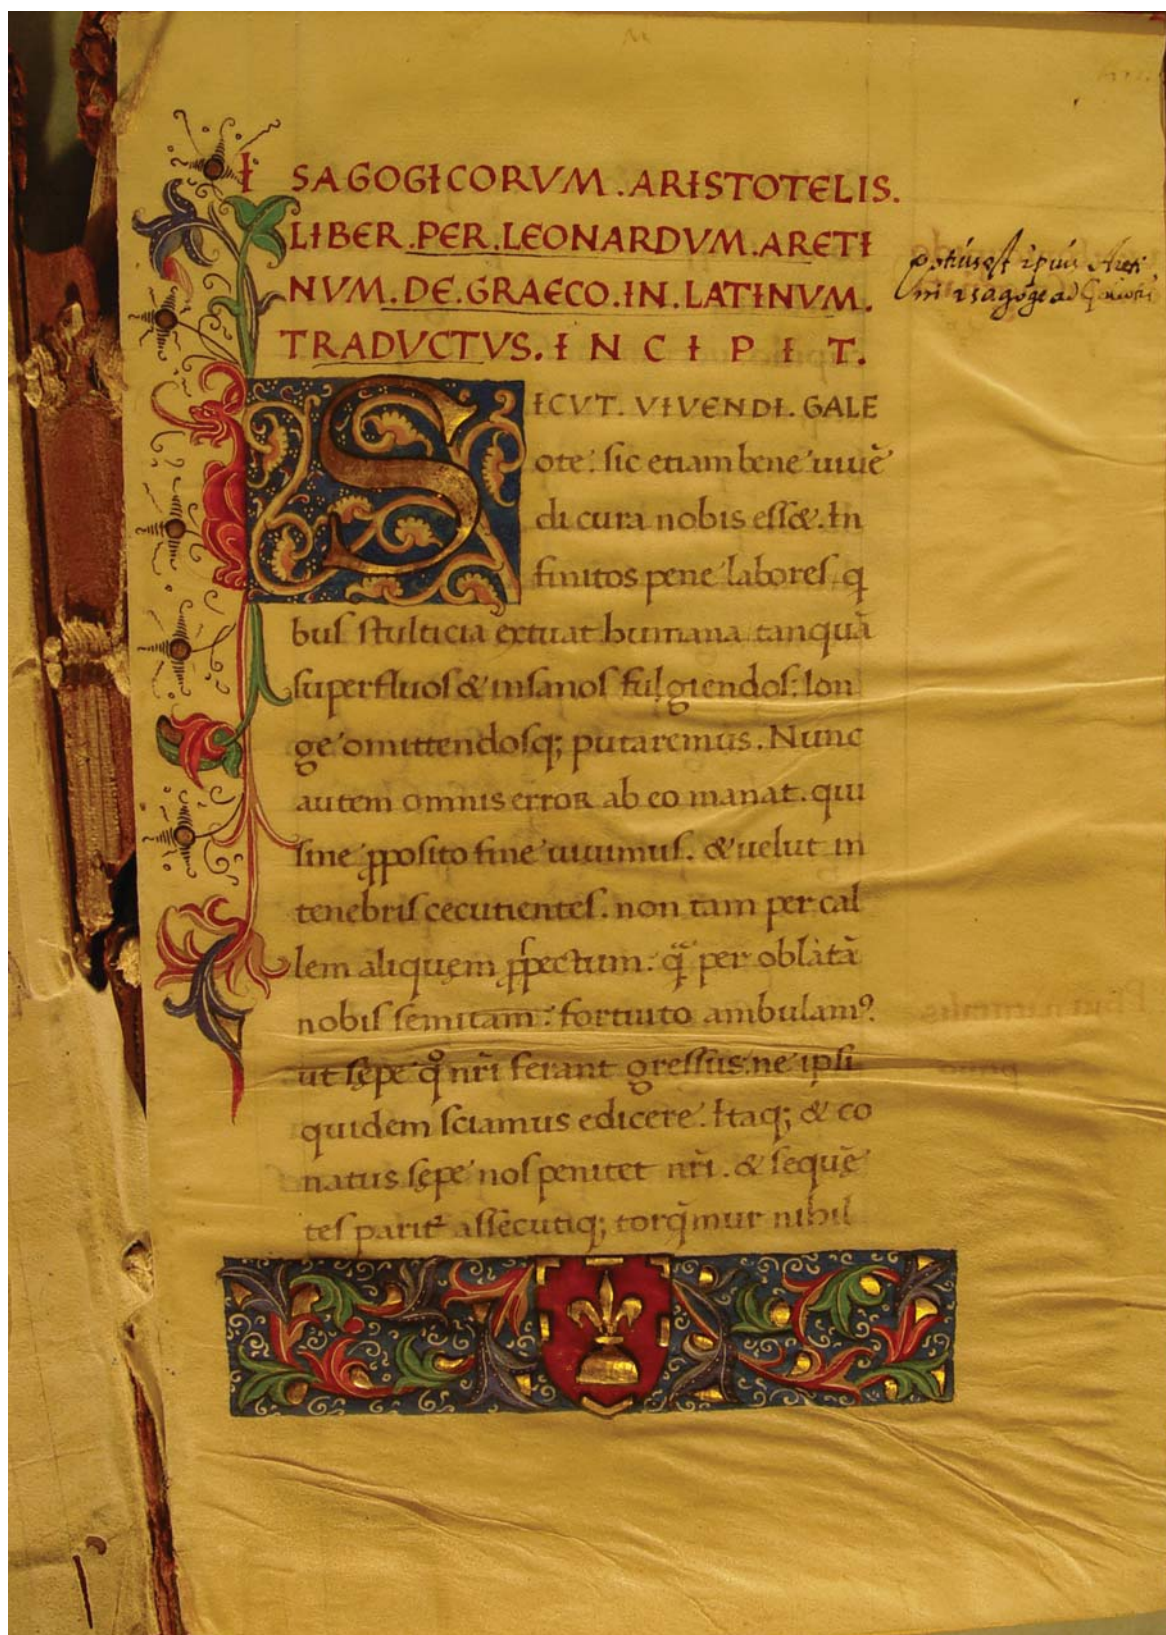 ISAGOGICORVM.ARISTOTELIS.
LIBER.PER.LEONARDVM.ARETI
NVM.DE.GRAECO.IN.LATINVM.
TRADVCTVS.INCIPIT.
SICVT.VIVENDI.GALE
ote: sic etiam bene uiuē
di cura nobis esset. In
finitos pene labores. q
bus stulticia extuat humana tanquā
superfluos & insanos fulgiendos: lon
ge omittendosq; putaremus. Nunc
autem omnis error ab eo manat. qui
sine ꝓposito fine uiuimus. & uelut in
tenebris cecutientes. non tam per cal
lem aliquem ꝓspectum: quā per oblatā
nobis semitam: fortuito ambulamꝰ.
ut sępe qͦ nr̄i ferant gressus: ne ipsi
quidem sciamus edicere. Itaq; & co
natus sępe nos penitet nr̄i. & sequē
tes parit assecutiq; torq̄mur nihil
potius est ipsius Areti
ni isagoge ad